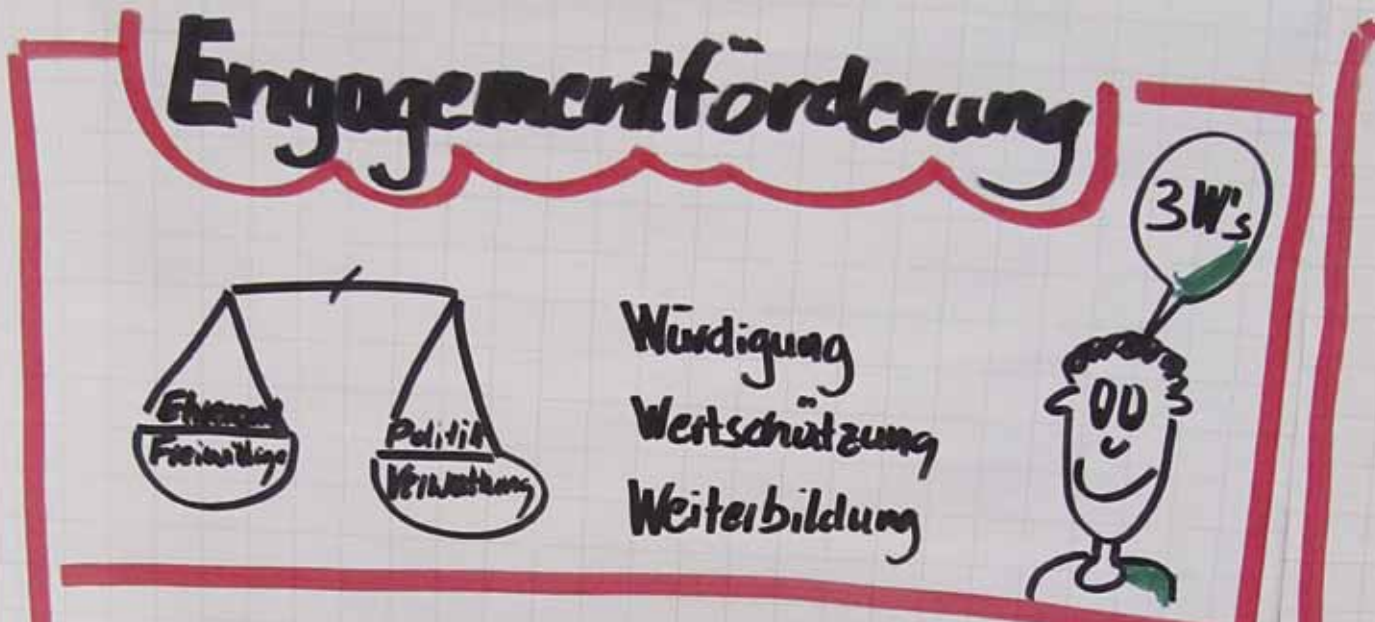 Engagementförderung
3W's
Ehrenamt
Freiwillige
Politik
Verwaltung
Würdigung
Wertschätzung
Weiterbildung